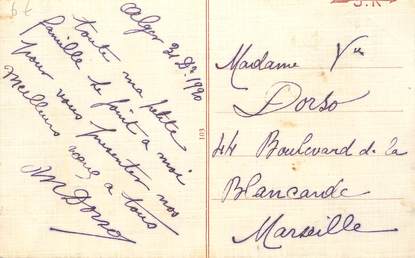 Alger 31 Dre 1920
toute ma petite
famille se joint à moi
pour vous présenter nos
meilleurs vœux à tous
M Dorso
Madame Vve
Dorso
44 Boulevard de la
Blancarde
Marseille
103